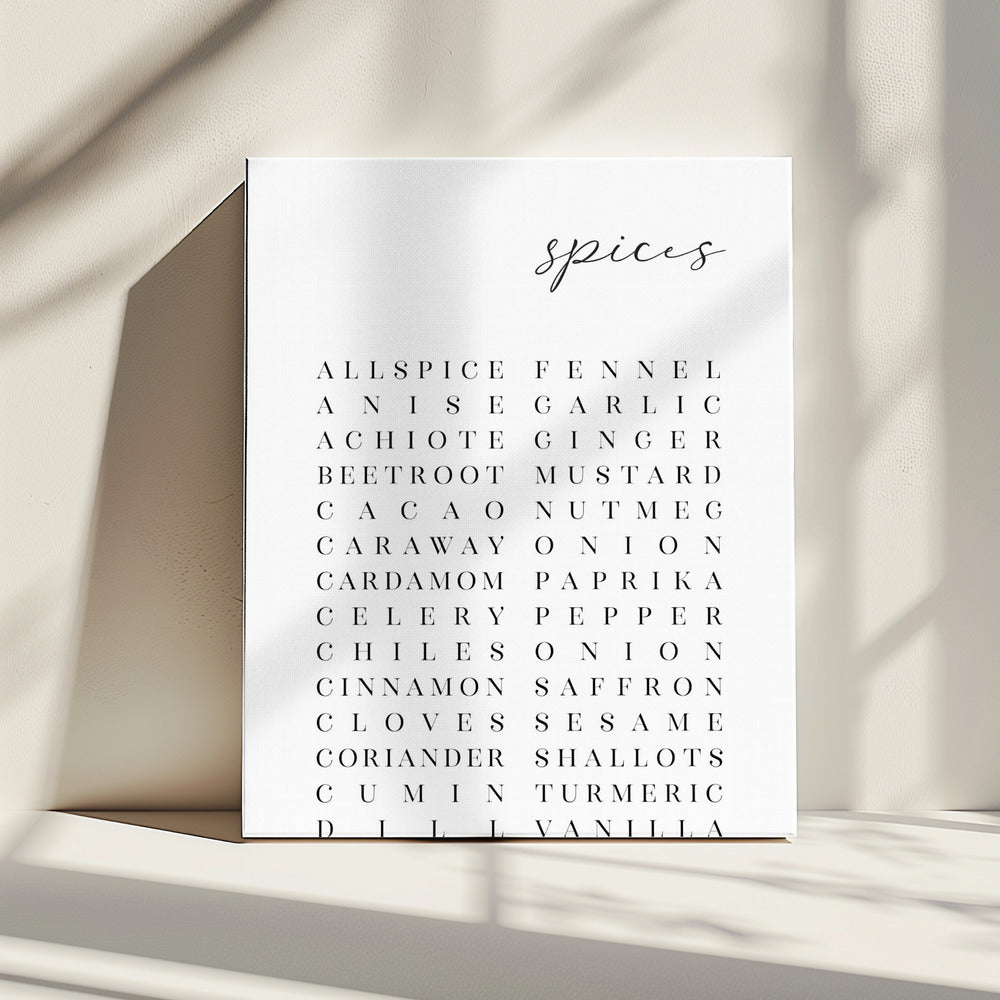 spices
ALLSPICE FENNEL
ANISE GARLIC
ACHIOTE GINGER
BEETROOT MUSTARD
CACAO NUTMEG
CARAWAY ONION
CARDAMOM PAPRIKA
CELERY PEPPER
CHILES ONION
CINNAMON SAFFRON
CLOVES SESAME
CORIANDER SHALLOTS
CUMIN TURMERIC
DILL VANILLA